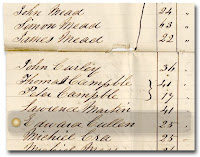 John Mead 24 "
Simon Mead 43 "
James Mead 22 "
John Curley 34 "
Thomas Campble 41 "
Peter Campble } 19 "
Lawrence Martin 41 "
Edward Cullen 25 "
Michael 25 "
Michael